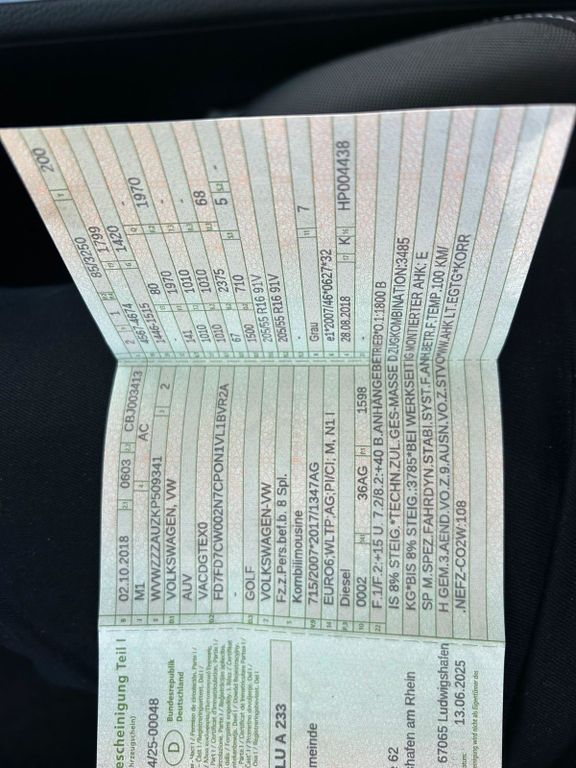 escheinigung Teil I
rzeugschein)
4/25-00048
D
Bundesrepublik
Deutschland
LU A 233
meinde
: 62
hafen am Rhein
67065 Ludwigshafen
13.06.2025
02.10.2018 0603 CBJ003413
M1 AC
WVWZZZAUZKP509341 2
VOLKSWAGEN, VW
AUV
VACDGTEX0
FD7FD7CW002N7CPON1VL1BVR2A
-
GOLF
VOLKSWAGEN-VW
Fz.z.Pers.bef.b. 8 Spl.
Kombilimousine
715/2007*2017/1347AG
EURO6;WLTP;AG;PI/CI; M, N1 I
Diesel
0002 36AG 1598
F.1/F.2:+15 U. 7.2/8.2:+40 B.ANHÄNGEBETRIEB*O.1:1800 B
IS 8% STEIG.*TECHN.ZUL.GES-MASSE D.ZUGKOMBINATION:3485
KG*BIS 8% STEIG.:3785*BEI WERKSEITIG MONTIERTER AHK: E
SP M.SPEZ.FAHRDYN.STABI.SYST.F.ANH.BETR.F.TEMP.100 KM/
H GEM.3.AEND.VO.Z.9.AUSN.VO.Z.STVO*WW.AHK LT.EGTG*KORR
.NEFZ-CO2W.:108
2 1 85/3250 200
4567-4674 1799
1446-1515 1420
80 - 1970
1970 -
141 1010 -
1010 1010 68
1010 2375 5 -
67 710
1500
205/55 R16 91V
205/55 R16 91V
-
Grau 7
e1*2007/46*0627*32
28.08.2018 K HP004438
-